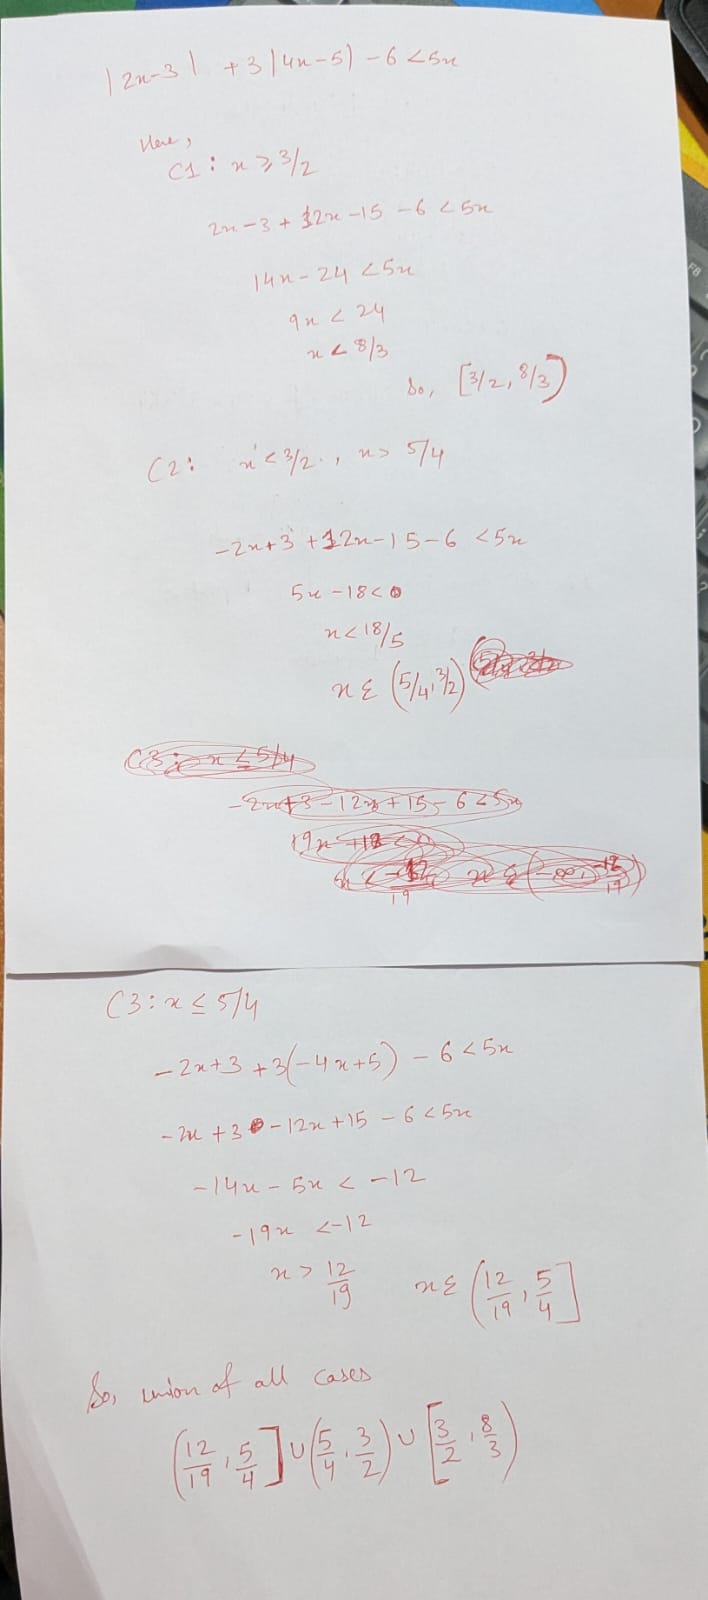 |2x-3| + 3|4x-5| - 6 < 5x
Here,
C1: x ≥ 3/2
2x-3 + 12x-15 - 6 < 5x
14x - 24 < 5x
9x < 24
x < 8/3
So, [3/2, 8/3)
C2: x < 3/2, x > 5/4
-2x+3 + 12x-15-6 < 5x
5x - 18 < 0
x < 18/5
x ε (5/4, 3/2)
C3: x ≤ 5/4
-2x+3-12x+15-6 < 5x
C3: x ≤ 5/4
-2x+3 + 3(-4x+5) - 6 < 5x
-2x + 3 - 12x + 15 - 6 < 5x
-14x - 5x < -12
-19x < -12
x > 12/19 x ε (12/19, 5/4]
So, union of all cases
(12/19, 5/4] ∪ (5/4, 3/2) ∪ [3/2, 8/3)